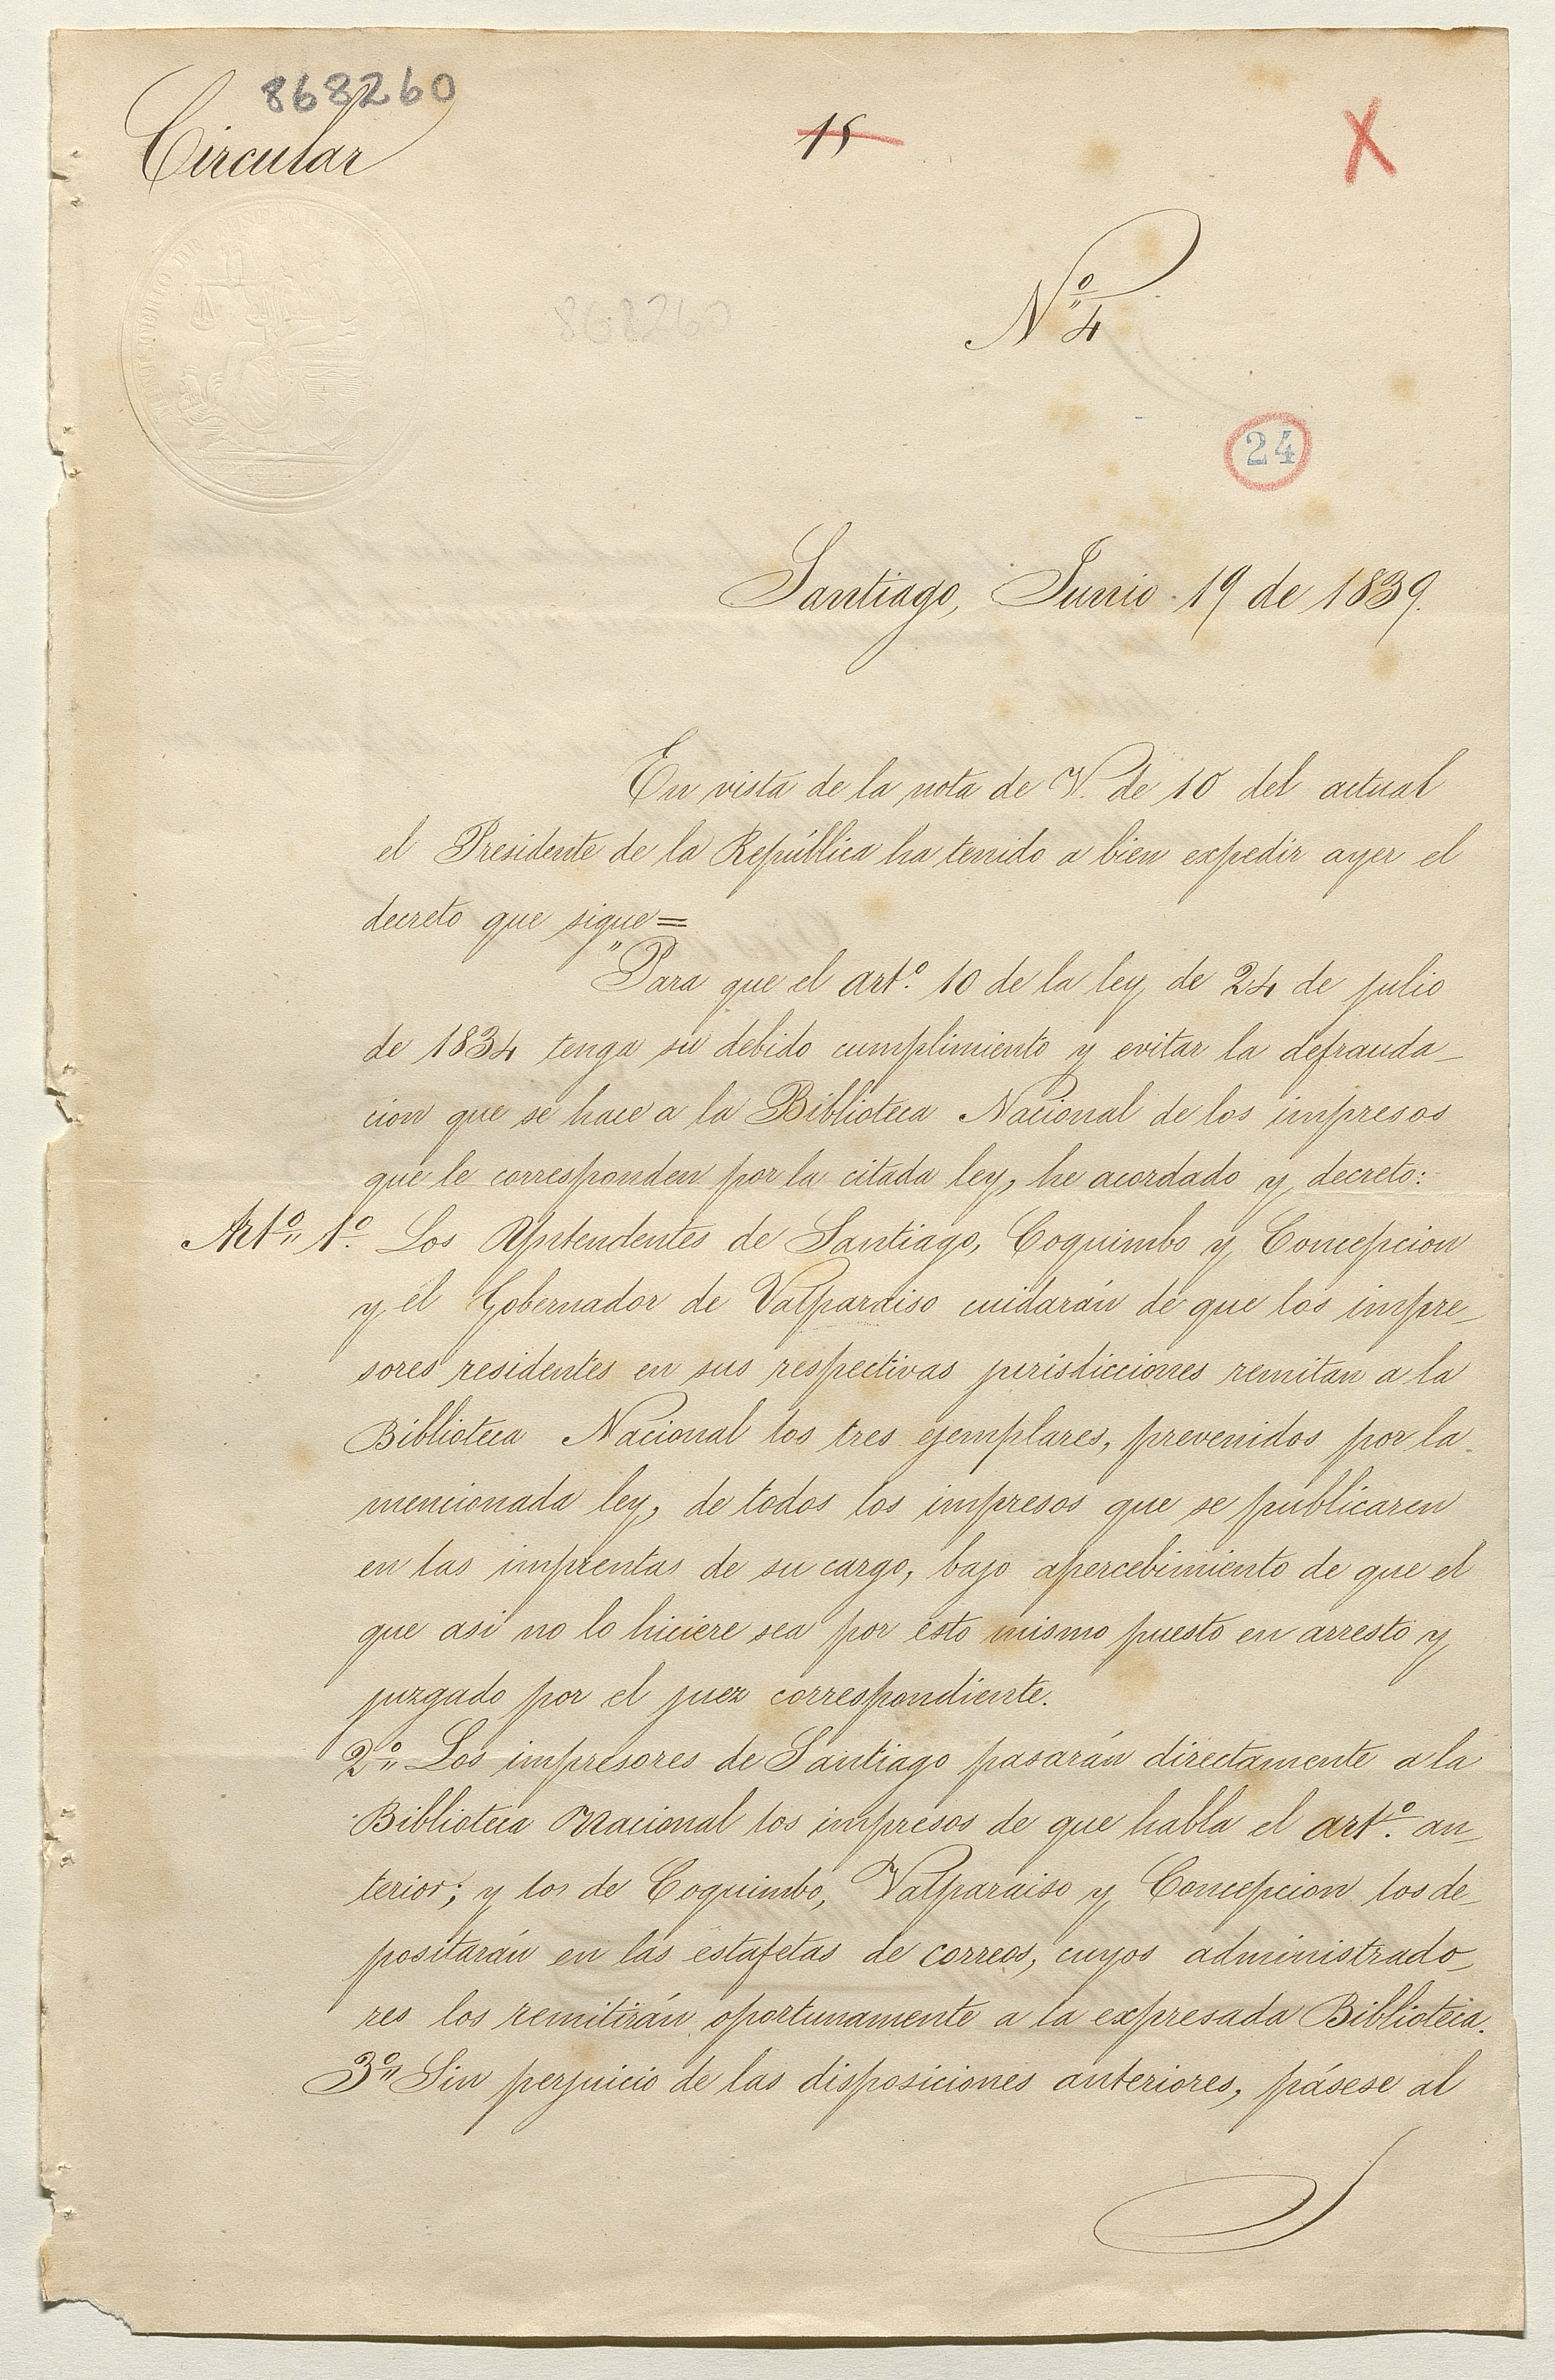 868260
Circular
15
X
Nº 4
868260
24
Santiago, Junio 19 de 1839.
En vista de la nota de V. de 10 del actual
el Presidente de la República ha tenido a bien expedir ayer el
decreto que sigue=
"Para que el artº. 10 de la ley de 24 de julio
de 1834 tenga su debido cumplimiento y evitar la defrauda-
cion que se hace a la Biblioteca Nacional de los impresos
que le corresponden por la citada ley, he acordado y decreto:
Artº. 1º. Los Yntendentes de Santiago, Coquimbo y Concepcion
y el Gobernador de Valparaiso cuidarán de que los impre-
sores residentes en sus respectivas jurisdicciones remitan a la
Biblioteca Nacional los tres ejemplares, prevenidos por la
mencionada ley, de todos los impresos que se publicaren
en las imprentas de su cargo, bajo apercebimiento de que el
que asi no lo hiciere sea por esto mismo puesto en arresto y
juzgado por el juez correspondiente.
2º. Los impresores de Santiago pasarán directamente a la
Biblioteca Nacional los impresos de que habla el artº. an-
terior; y los de Coquimbo, Valparaiso y Concepcion los de-
positarán en las estafetas de correos, cuyos administrado-
res los remitirán oportunamente a la expresada Biblioteca.
3º. Sin perjuicio de las disposiciones anteriores, pásese al